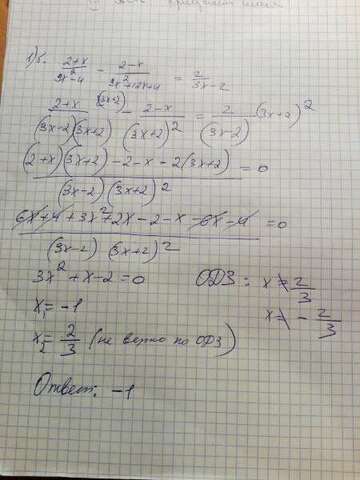 1)б. (2+x)/(9x²-4) - (2-x)/(9x²+12x+4) = 2/(3x-2)
(2+x)/((3x-2)(3x+2)) (3x+2) - (2-x)/(3x+2)² = 2/(3x-2) (3x+2)²
((2+x)(3x+2)-2-x-2(3x+2))/((3x-2)(3x+2)²) = 0
(6x+4+3x²+2x-2-x-6x-4)/((3x-2)(3x+2)²) = 0
3x²+x-2=0 ОДЗ: x≠2/3
x₁=-1 x≠-2/3
x₂=2/3 (не верно по ОДЗ)
Ответ: -1